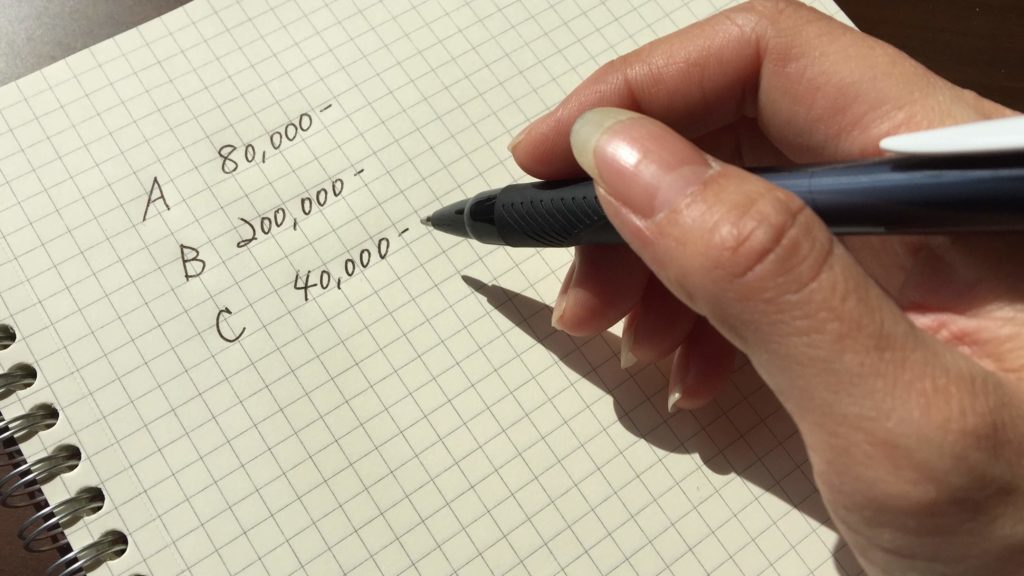 A 80,000-
B 200,000-
C 40,000-